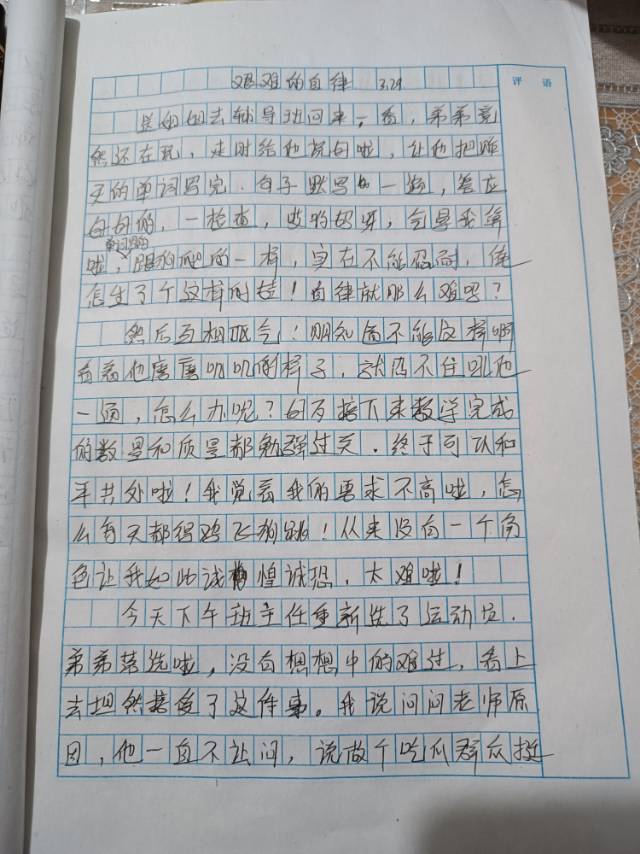 评语
艰难的自律 3.29
送妞妞去辅导班回来一看，弟弟竟
然还在玩，走时给他说句啦，让他把昨
天的单词写完，句子默写一遍，答应
自自的，一检查，
啦，单词写的跟狗爬的一样，实在不能忍耐，俺
怎生了个这样的娃！自律就那么难吗？
然后互相怄气！明知道不能这样啊
看着他磨磨叽叽的样子，就忍不住吼他
一通，怎么办呢？好歹接下来数学完成
的数量和质量都勉强过关。终于可以和
平共处啦！我觉着我的要求不高啦，怎
么每天都得鸡飞狗跳！从来没有一个角
色让我如此诚惶诚恐，太难啦！
今天下午班主任重新选了运动员，
弟弟落选啦，没有想想中的难过，看上
去坦然接受了这件事。我说问问老师原
因，他一直不让问，说做个吃瓜群众挺